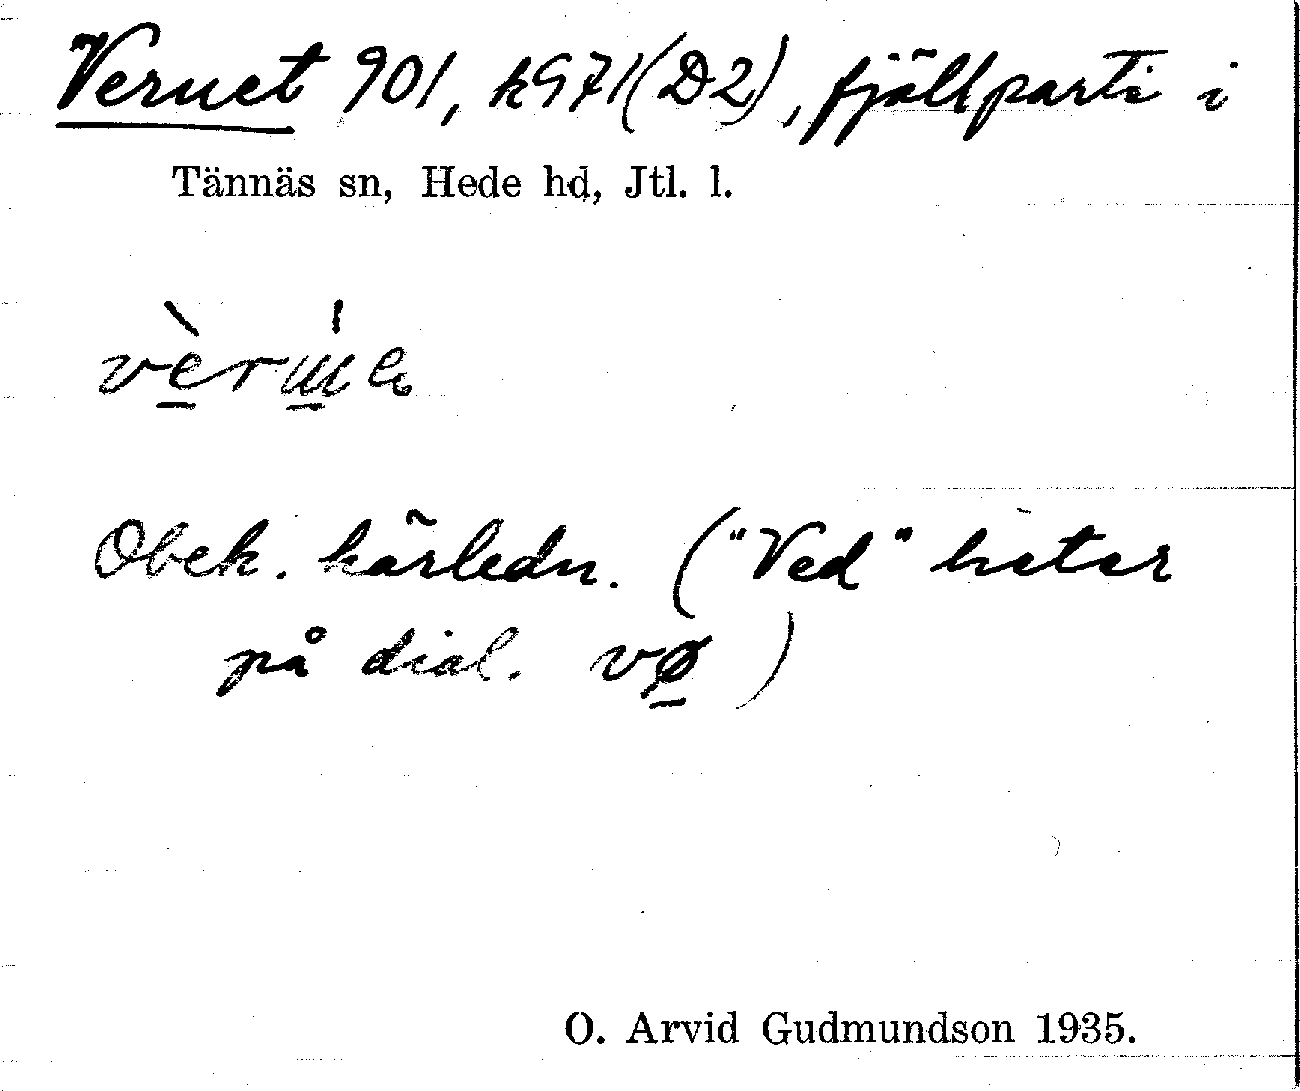 Veruet 901, k971(D2), fjällparti i
Tännäs sn, Hede hd, Jtl. l.
Obek. härledn. ("Ved" heter
på dial. vø)
O. Arvid Gudmundson 1935.